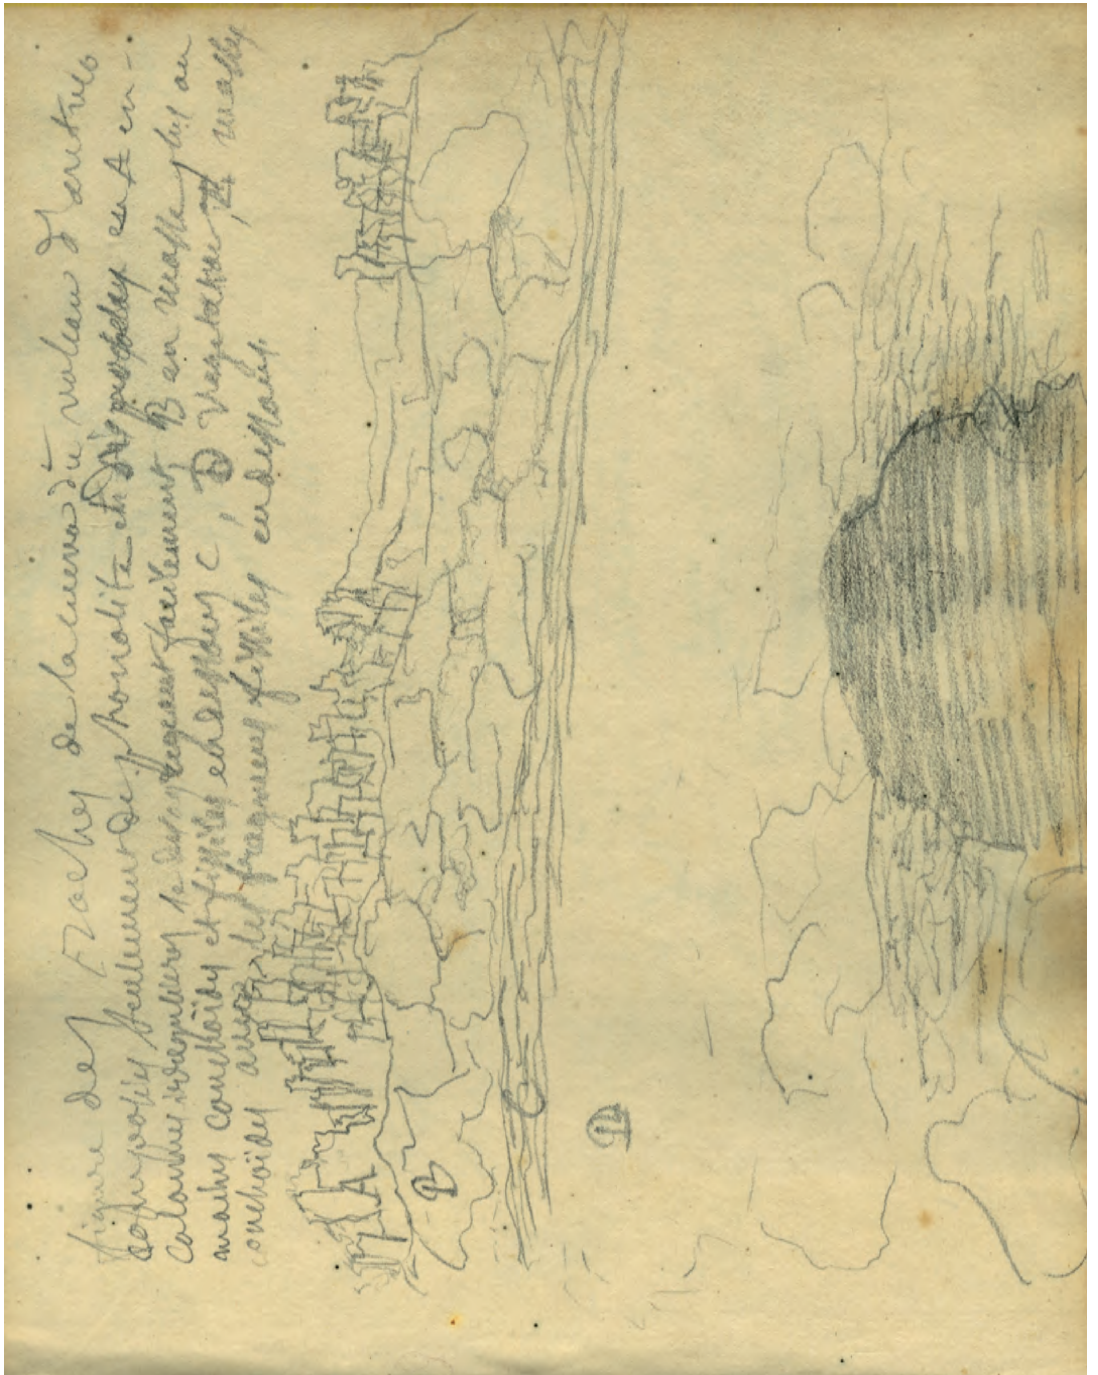 figure des Roches de la cueva du volcan d'antreo
composées seulement de phonolite et disposées en A en -
colonnes irregulieres se desagregeant facilement B en masse plus ou
moins conchoïdes et fissiles en dessous C, D Vegetation, masses
conchoïdes avec des fragmens fissiles en dessous.
A
B
C
D